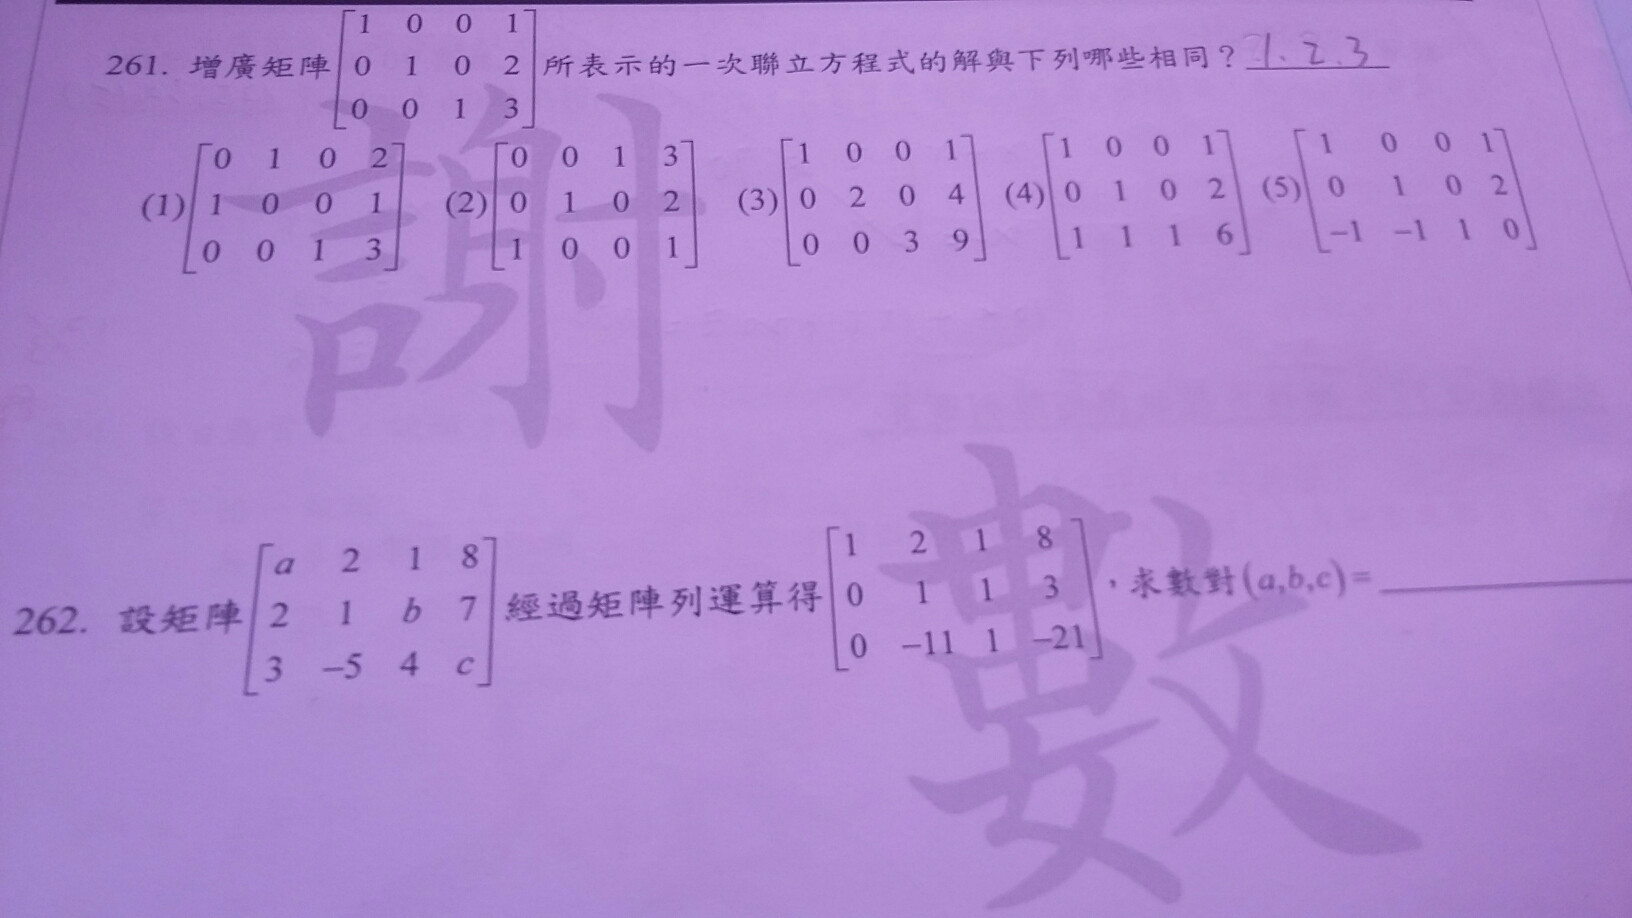 261. 增廣矩陣[1 0 0 1
0 1 0 2
0 0 1 3]所表示的一次聯立方程式的解與下列哪些相同？1. 2. 3
(1)[0 1 0 2
1 0 0 1
0 0 1 3]
(2)[0 0 1 3
0 1 0 2
1 0 0 1]
(3)[1 0 0 1
0 2 0 4
0 0 3 9]
(4)[1 0 0 1
0 1 0 2
1 1 1 6]
(5)[1 0 0 1
0 1 0 2
-1 -1 1 0]
謝
262. 設矩陣[a 2 1 8
2 1 b 7
3 -5 4 c]經過矩陣列運算得[1 2 1 8
0 1 1 3
0 -11 1 -21]，求數對(a,b,c)=
數